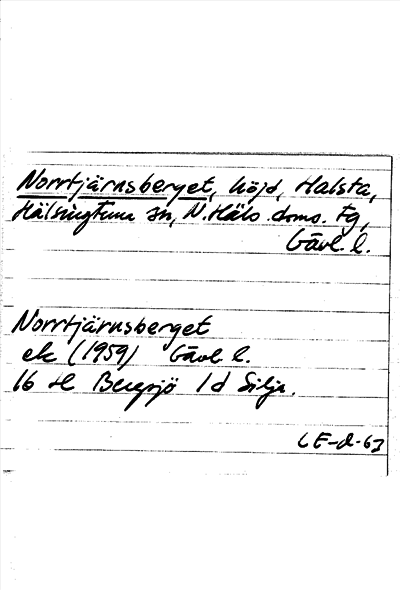 Norrtjärnsberget, höjd, Halsta,
Hälsingtuna sn, N. Häls. doms. tg,
Gävl. l.
Norrtjärnsberget
ek (1959) Gävl. l.
16 H Bergsjö 1 d Silja.
LE-d-63